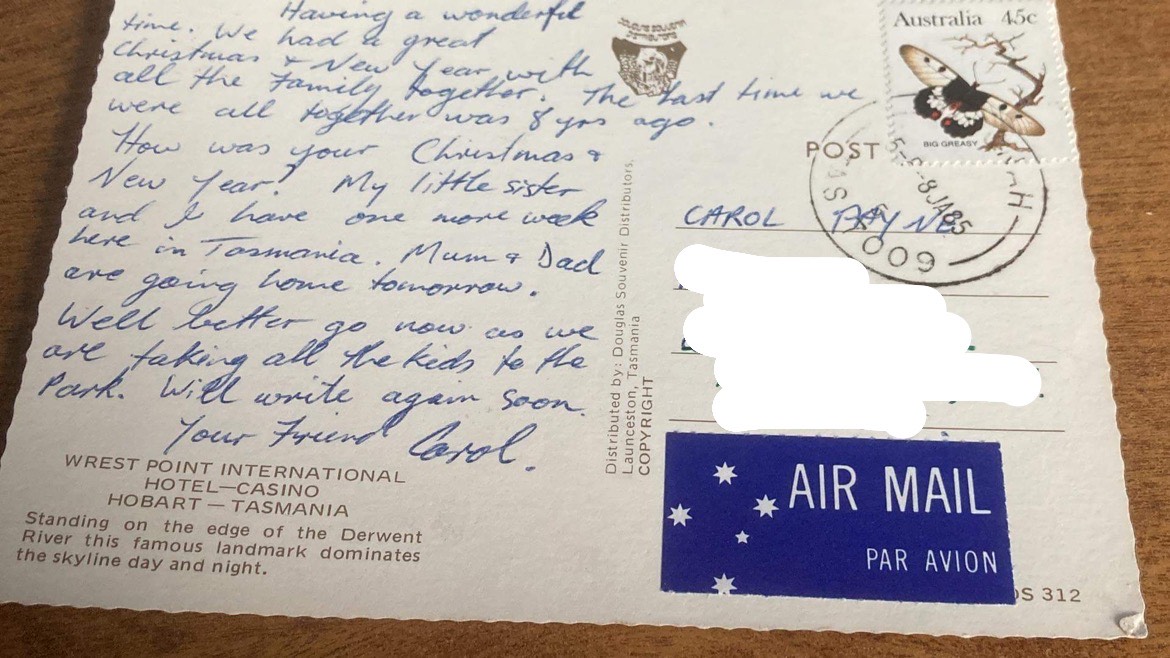 Having a wonderful
time. We had a great
Christmas & New Year with
all the Family together. The last time we
were all together was 8 yrs ago.
How was your Christmas &
New Year? My little sister
and I have one more week
here in Tasmania. Mum & Dad
are going home tomorrow.
Well better go now as we
are taking all the kids to the
Park. Will write again soon.
Your Friend Carol.
WREST POINT INTERNATIONAL
HOTEL—CASINO
HOBART — TASMANIA
Standing on the edge of the Derwent
River this famous landmark dominates
the skyline day and night.
Distributed by: Douglas Souvenir Distributors,
Launceston, Tasmania
COPYRIGHT
Australia 45c
BIG GREASY
POST
8 JA 85
7009
CAROL PAYNE
AIR MAIL
PAR AVION
DS 312